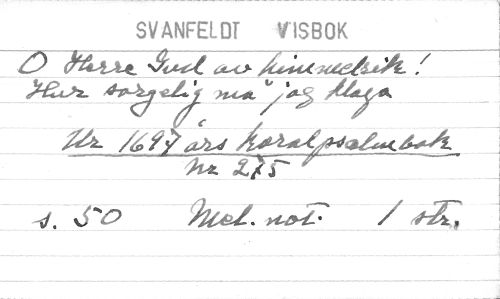 SVANFELDT VISBOK
O Herre Gud av himmelrik!
Hur sorgelig må jag klaga
Ur 1697 års koralpsalmbok
Nr 275
s. 50 Mel. not. 1 str.